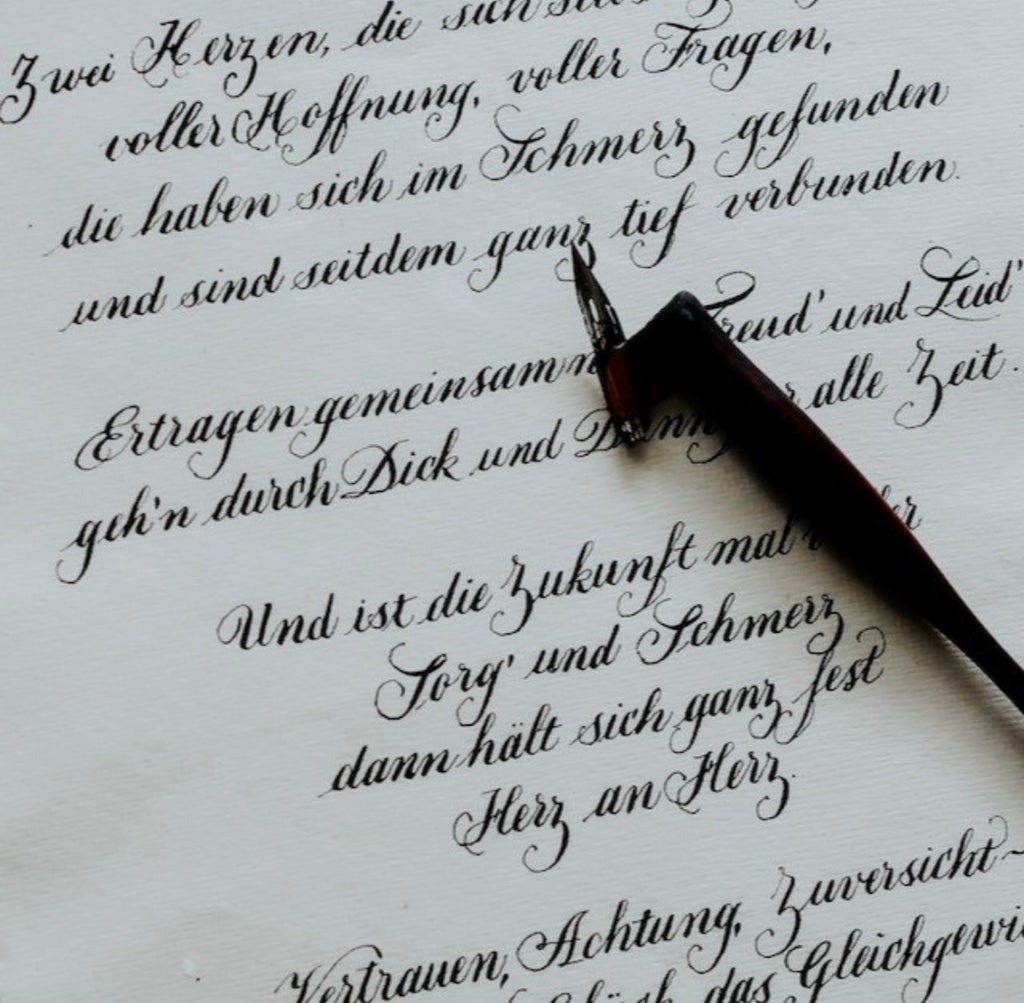 Zwei Herzen, die sich
voller Hoffnung, voller Fragen,
die haben sich im Schmerz gefunden
und sind seitdem ganz tief verbunden.
Ertragen gemeinsam Freud' und Leid'
geh'n durch Dick und Dünn alle Zeit.
Und ist die Zukunft mal
Sorg' und Schmerz
dann hält sich ganz fest
Herz an Herz.
Vertrauen, Achtung, Zuversicht-
das